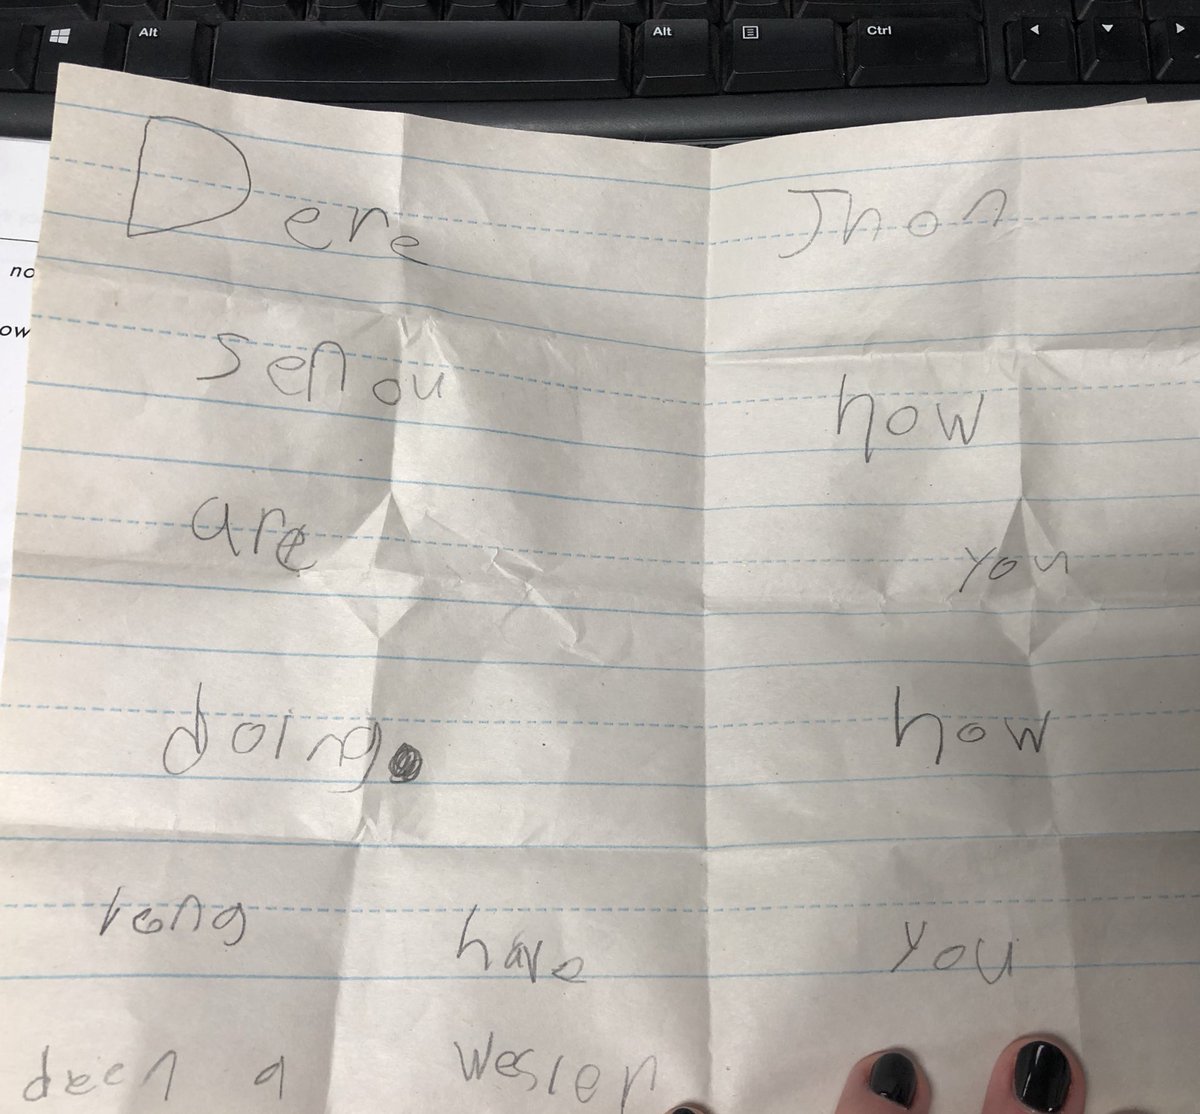 Alt Alt Ctrl
no
ow
Dere Jhon
senou how
are you
doing. how
rong have you
deen a Wesler